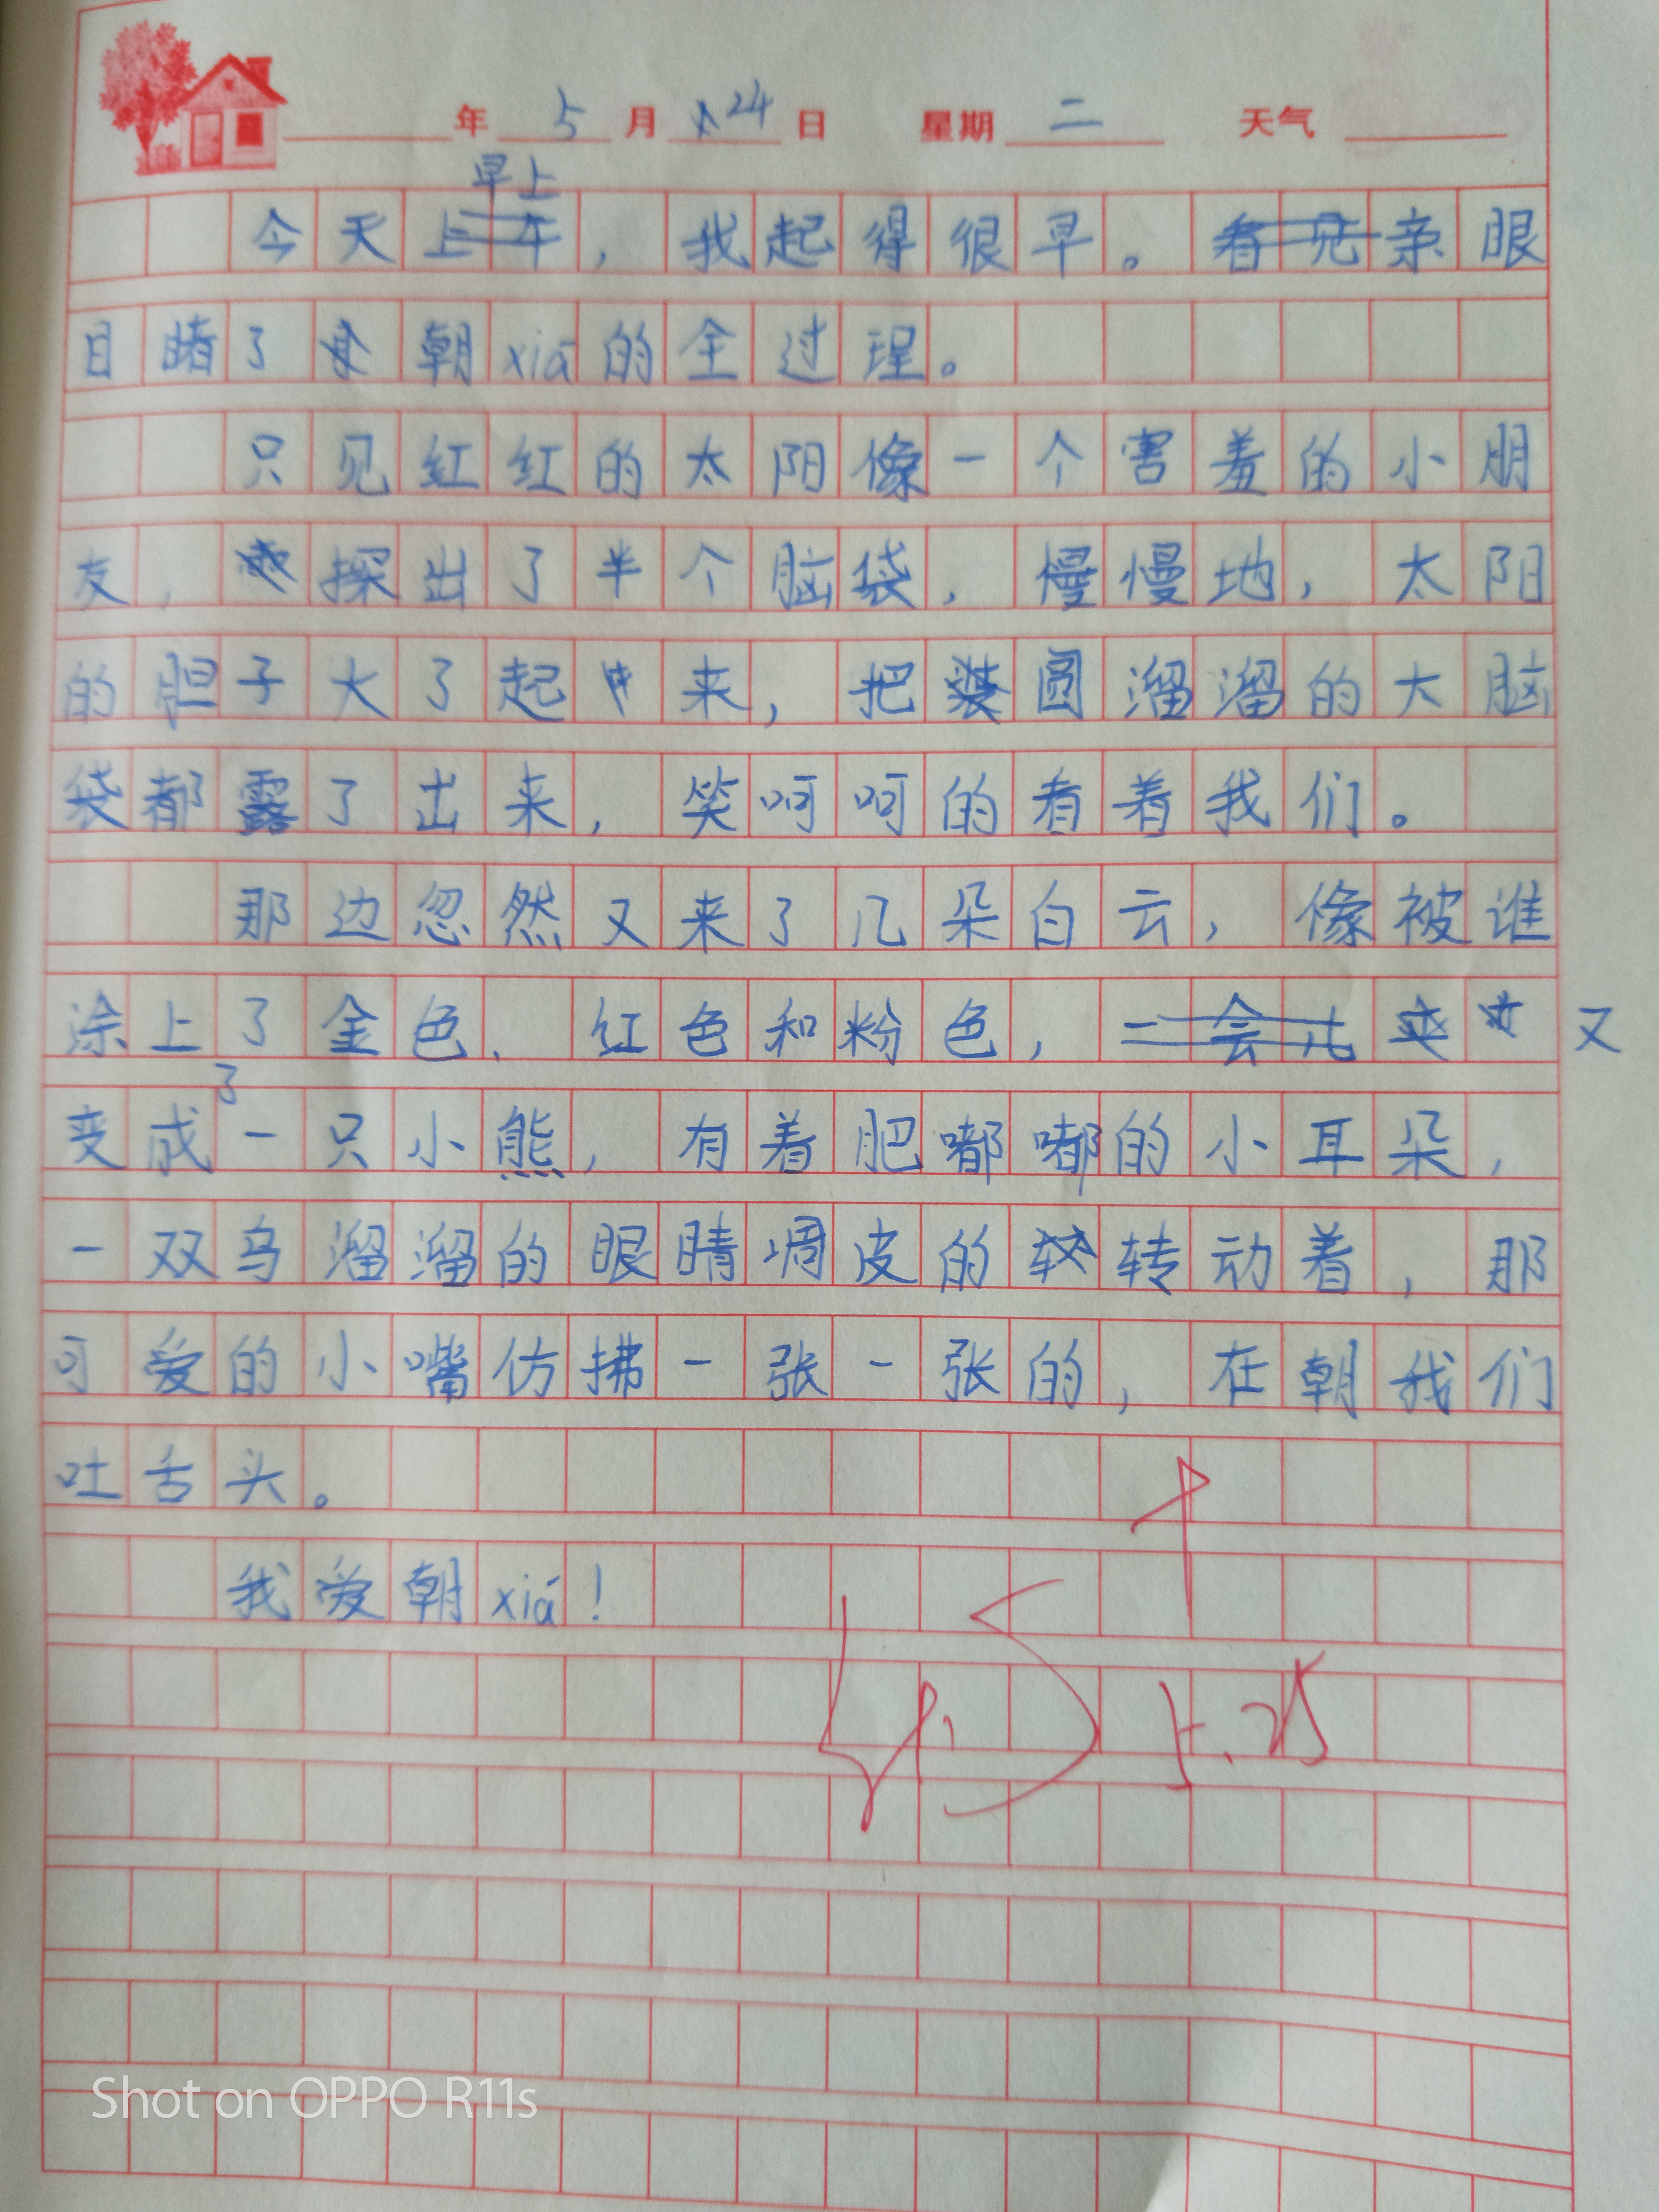 年 5 月 24 日 星期 二 天气
早上
今天上午，我起得很早。看见亲眼
目睹了朝xiá的全过程。
只见红红的太阳像一个害羞的小朋
友，探出了半个脑袋，慢慢地，太阳
的胆子大了起来，把圆溜溜的大脑
袋都露了出来，笑呵呵的看着我们。
那边忽然又来了几朵白云，像被谁
涂上了金色、红色和粉色，一会儿又
变成了一只小熊，有着肥嘟嘟的小耳朵，
一双乌溜溜的眼睛调皮的转动着，那
可爱的小嘴仿拂一张一张的，在朝我们
吐舌头。
我爱朝xiá！
5.25
Shot on OPPO R11s